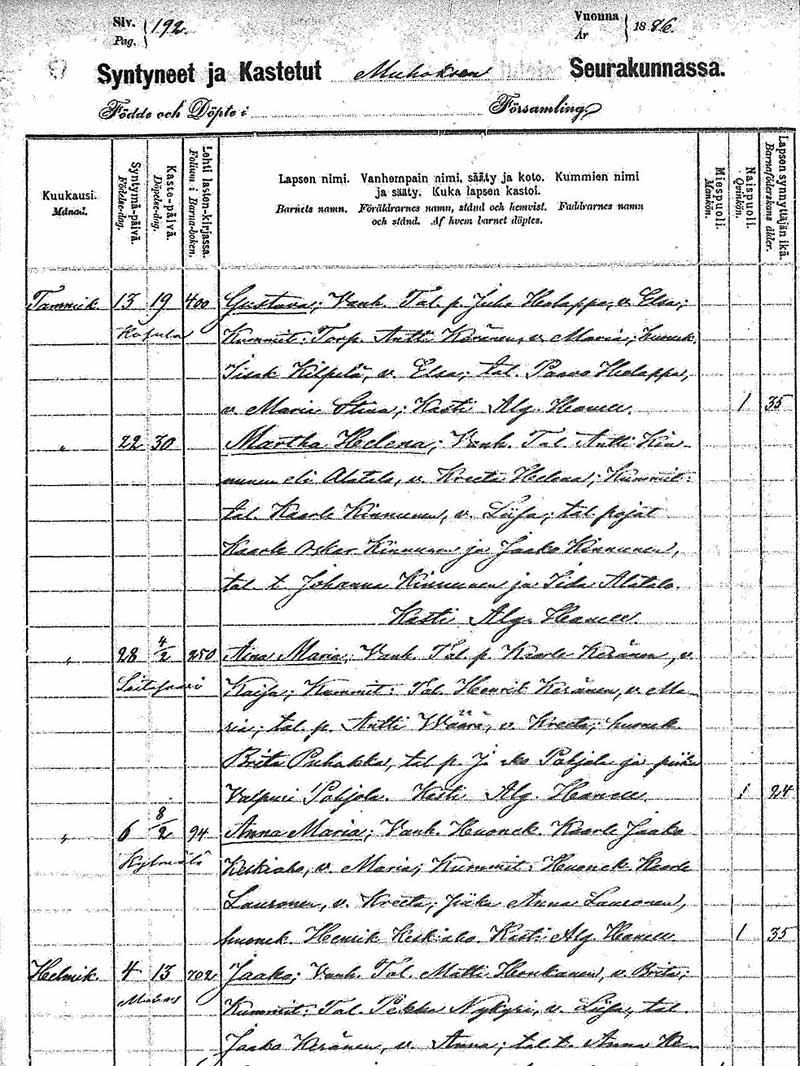 Siv. Pag. 192.
Vuonna År 1886.
Syntyneet ja Kastetut Muhoksen Seurakunnassa.
Födde och Döpte i Församling
Kuukausi. Månad.
Syntymä-päivä. Födelse-dag.
Kaste-päivä. Döpelse-dag.
Lehti lasten-kirjassa. Folium i Barna-boken.
Lapsen nimi. Vanhempain nimi, sääty ja koto. Kummien nimi
ja sääty. Kuka lapsen kastoi.
Barnets namn. Föräldrarnes namn, stånd och hemvist. Faddrarnes namn
och stånd. Af hvem barnet döptes.
Miespuoli. Mankön.
Naispuoli. Qvinkön.
Lapsen synnyttäjän ikä. Barnaföderskans ålder.
Tammik. 13 19 400 Gustava; Vanh. Tal. p. Juho Holappa, v. Elsa;
Kummit: Torp. Antti Keränen, v. Maria; huonek.
Iisak Kilpelä, v. Elsa; tal. Paavo Holappa,
v. Maria Stina; Kasti Alg. 1 35
„ 22 30 Martha Helena; Vanh. Tal. Antti Kin-
nunen eli Alatalo, v. Kreeta Helena; Kummit:
tal. Kaarle Kinnunen, v. Liisa; tal. pojat
Kaarle Oskar Kinnunen ja Jaako Kinnunen,
tal. t. Johanna Kinnunen ja Iida Alatalo.
Kasti Alg.
„ 28 4/2 250 Aina Maria; Vanh. Tal. p. Kaarle Keränen, v.
Kaisa; Kummit: Tal. Henrik Keränen, v. Ma-
ria; tal. p. Antti Määrä, v. Kreeta; huonek.
Brita Puhakka, tal. p. Pohjola ja piika
Valpuri Pohjola. Kasti Alg. 1 24
„ 6 8/2 94 Anna Maria; Vanh. Huonek. Kaarle Jaako
Kylmälä Keskiaho, v. Maria; Kummit: Huonek. Kaarle
Lauronen, v. Kreeta; piika Anna Lauronen,
huonek. Henrik Keskiaho. Kasti Alg. 1 35
Helmik. 4 13 702 Jaako; Vanh. Tal. Matti Honkanen, v. Brita;
Muhos Kummit: Tal. Pekka Nykyri, v. Liisa; tal.
Jaako Keränen, v. Anna; tal. t. Anna